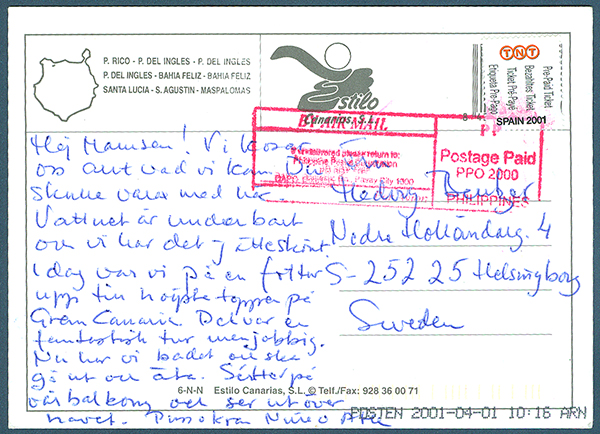 P. RICO - P. DEL INGLES - P. DEL INGLES
P. DEL INGLES - BAHIA FELIZ - BAHIA FELIZ
SANTA LUCIA - S. AGUSTIN - MASPALOMAS
Estilo
Canarias, S.L.
TNT
Pre-Paid Ticket
Bezahltes Ticket
Ticket Pré-Payé
Etiqueta Pre-Pago
SPAIN 2001
MAIL
If undelivered please return to:
Pasay City 1300
PP
Postage Paid
PPO 2000
PHILIPPINES
Hej Mamsen! Vi kosar
oss allt vad vi kan. Du
skulle vara med här.
Vattnet är underbart
och vi har det jätteskönt.
Idag var vi på en fottur
upp till högsta toppen på
Gran Canaria. Det var en
fantastisk tur men jobbig.
Nu har vi badat och ska
gå ut och äta. Sitter på
vår balkong och ser ut över
havet. Puss o kram
Fru
Hedvig
Nedre Holländareg. 4
S-252 25 Helsingborg
Sweden
6-N-N Estilo Canarias, S.L. © Telf./Fax: 928 36 00 71
POSTEN 2001-04-01 10:16 ARN